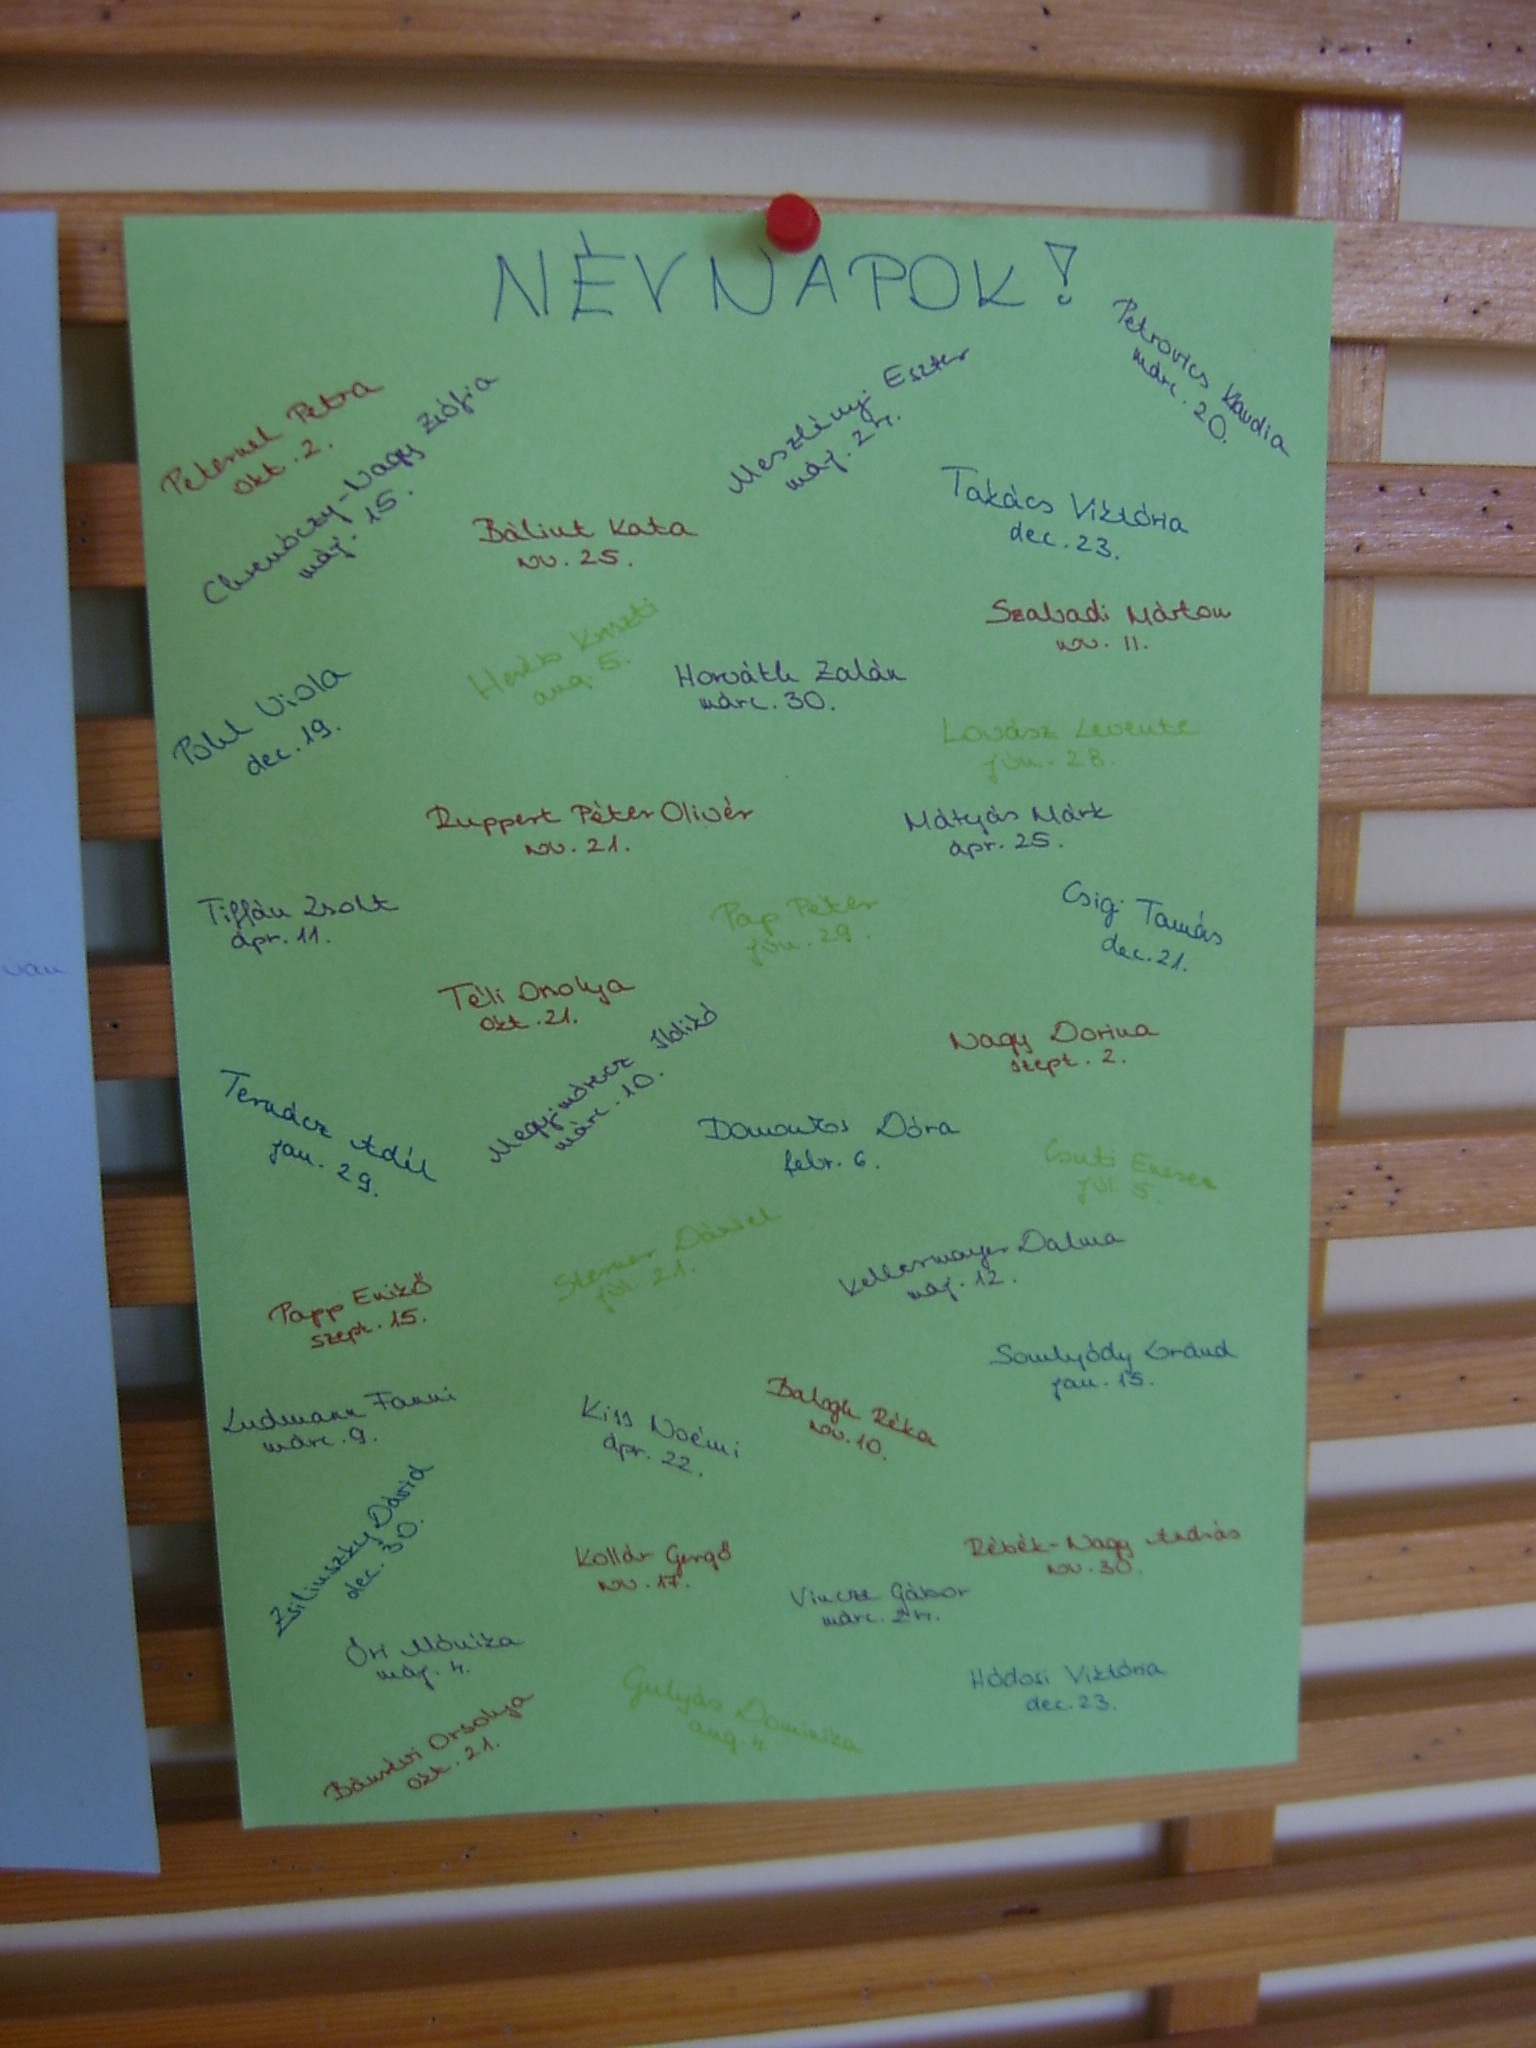 NÉVNAPOK!
Petrovics Klaudia
márc. 20.
Peternel Petra
okt. 2.
Meszlényi Eszter
máj. 24.
Chrenóczy-Nagy Zsófia
máj. 15.
Takács Viktória
dec. 23.
Bálint Kata
nov. 25.
Szabadi Márton
nov. 11.
Kriszti
aug. 5.
Horváth Zalán
márc. 30.
Pohl Viola
dec. 19.
Lovász Levente
jún. 28.
Ruppert Péter Olivér
nov. 21.
Mátyás Márk
ápr. 25.
Tiffán Zsolt
ápr. 11.
Pap Péter
jún. 29.
Csigi Tamás
dec. 21.
van
Téli Orsolya
okt. 21.
Megyimórecz Ildikó
márc. 10.
Nagy Dorina
szept. 2.
Ternácz Adél
jan. 29.
Domonkos Dóra
febr. 6.
Csuti Emese
júl. 5.
Sterner Dániel
júl. 21.
Kellermayer Dalma
máj. 12.
Papp Enikő
szept. 15.
Somlyódy Loránd
jan. 15.
Ludmann Fanni
márc. 9.
Kiss Noémi
ápr. 22.
Balogh Réka
nov. 10.
Zsiliuszky Dávid
dec. 30.
Kollár Gergő
nov. 17.
Rébék-Nagy András
nov. 30.
Vincze Gábor
márc. 24.
Őri Mónika
máj. 4.
Hódosi Viktória
dec. 23.
Gulyás Dominika
aug. 4.
Orsolya
okt. 21.